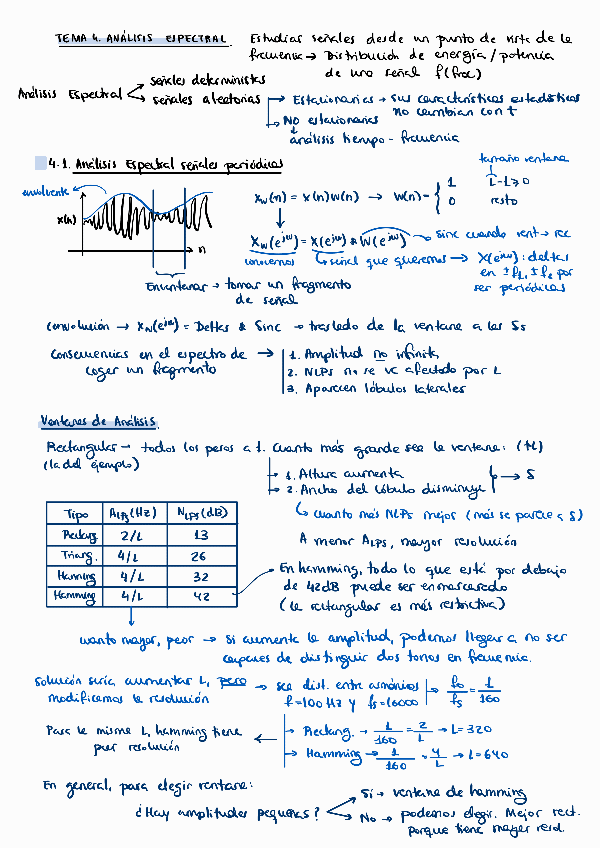 TEMA 4. ANÁLISIS ESPECTRAL. Estudiar señales desde un punto de vista de la
frecuencia → Distribución de energía / potencia
de una señal f(frec)
Análisis Espectral
señales deterministas
señales aleatorias → Estacionarias → sus características estadísticas
no cambian con t
→ No estacionarias
análisis tiempo - frecuencia
4.1. Análisis Espectral señales periódicas
envolvente
x(n)
n
Enventanar → tomar un fragmento
de señal
tamaño ventana
xw(n) = x(n)w(n) → w(n) = { 1 L-1≥0
0 resto
Xw(e^jω) = X(e^jω) * W(e^jω) → sinc cuando vent → rec
conocemos → señal que queremos → X(e^jω): deltas
en ± f1, ± f2 por
ser periódicas
Convolución → Xw(e^jω) = Deltas * Sinc → traslado de la ventana a las δs
Consecuencias en el espectro de
coger un fragmento →
1. Amplitud no infinita
2. NLPS no se ve afectado por L
3. Aparecen lóbulos laterales
Ventanas de Análisis.
Rectangular → todos los pesos a 1. Cuanto más grande sea la ventana: (↑L)
(la del ejemplo)
→ 1. Altura aumenta
→ 2. Ancho del lóbulo disminuye → δ
↳ cuanto más NLPS mejor (más se parece a δ)
A menor ALPS, mayor resolución
Tipo ALPS (Hz) NLPS (dB)
Rectang. 2/L 13
Triang. 4/L 26
Hanning 4/L 32
Hamming 4/L 42
En hamming, todo lo que está por debajo
de 42dB puede ser enmascarado
(la rectangular es más restrictiva)
cuanto mayor, peor → Si aumenta la amplitud, podemos llegar a no ser
capaces de distinguir dos tonos en frecuencia.
Solución sería aumentar L, pero
modificamos la resolución
→ sea dist. entre armónicos
f=100Hz y fs=16000
→ f0/fs = 1/160
Para la misma L, hamming tiene
peor resolución
→ Rectang. → 1/160 = 2/L → L=320
→ Hamming → 1/160 = 4/L → L=640
En general, para elegir ventana:
¿Hay amplitudes pequeñas?
Sí → ventana de hamming
No → podemos elegir. Mejor rect.
porque tiene mayor resol.